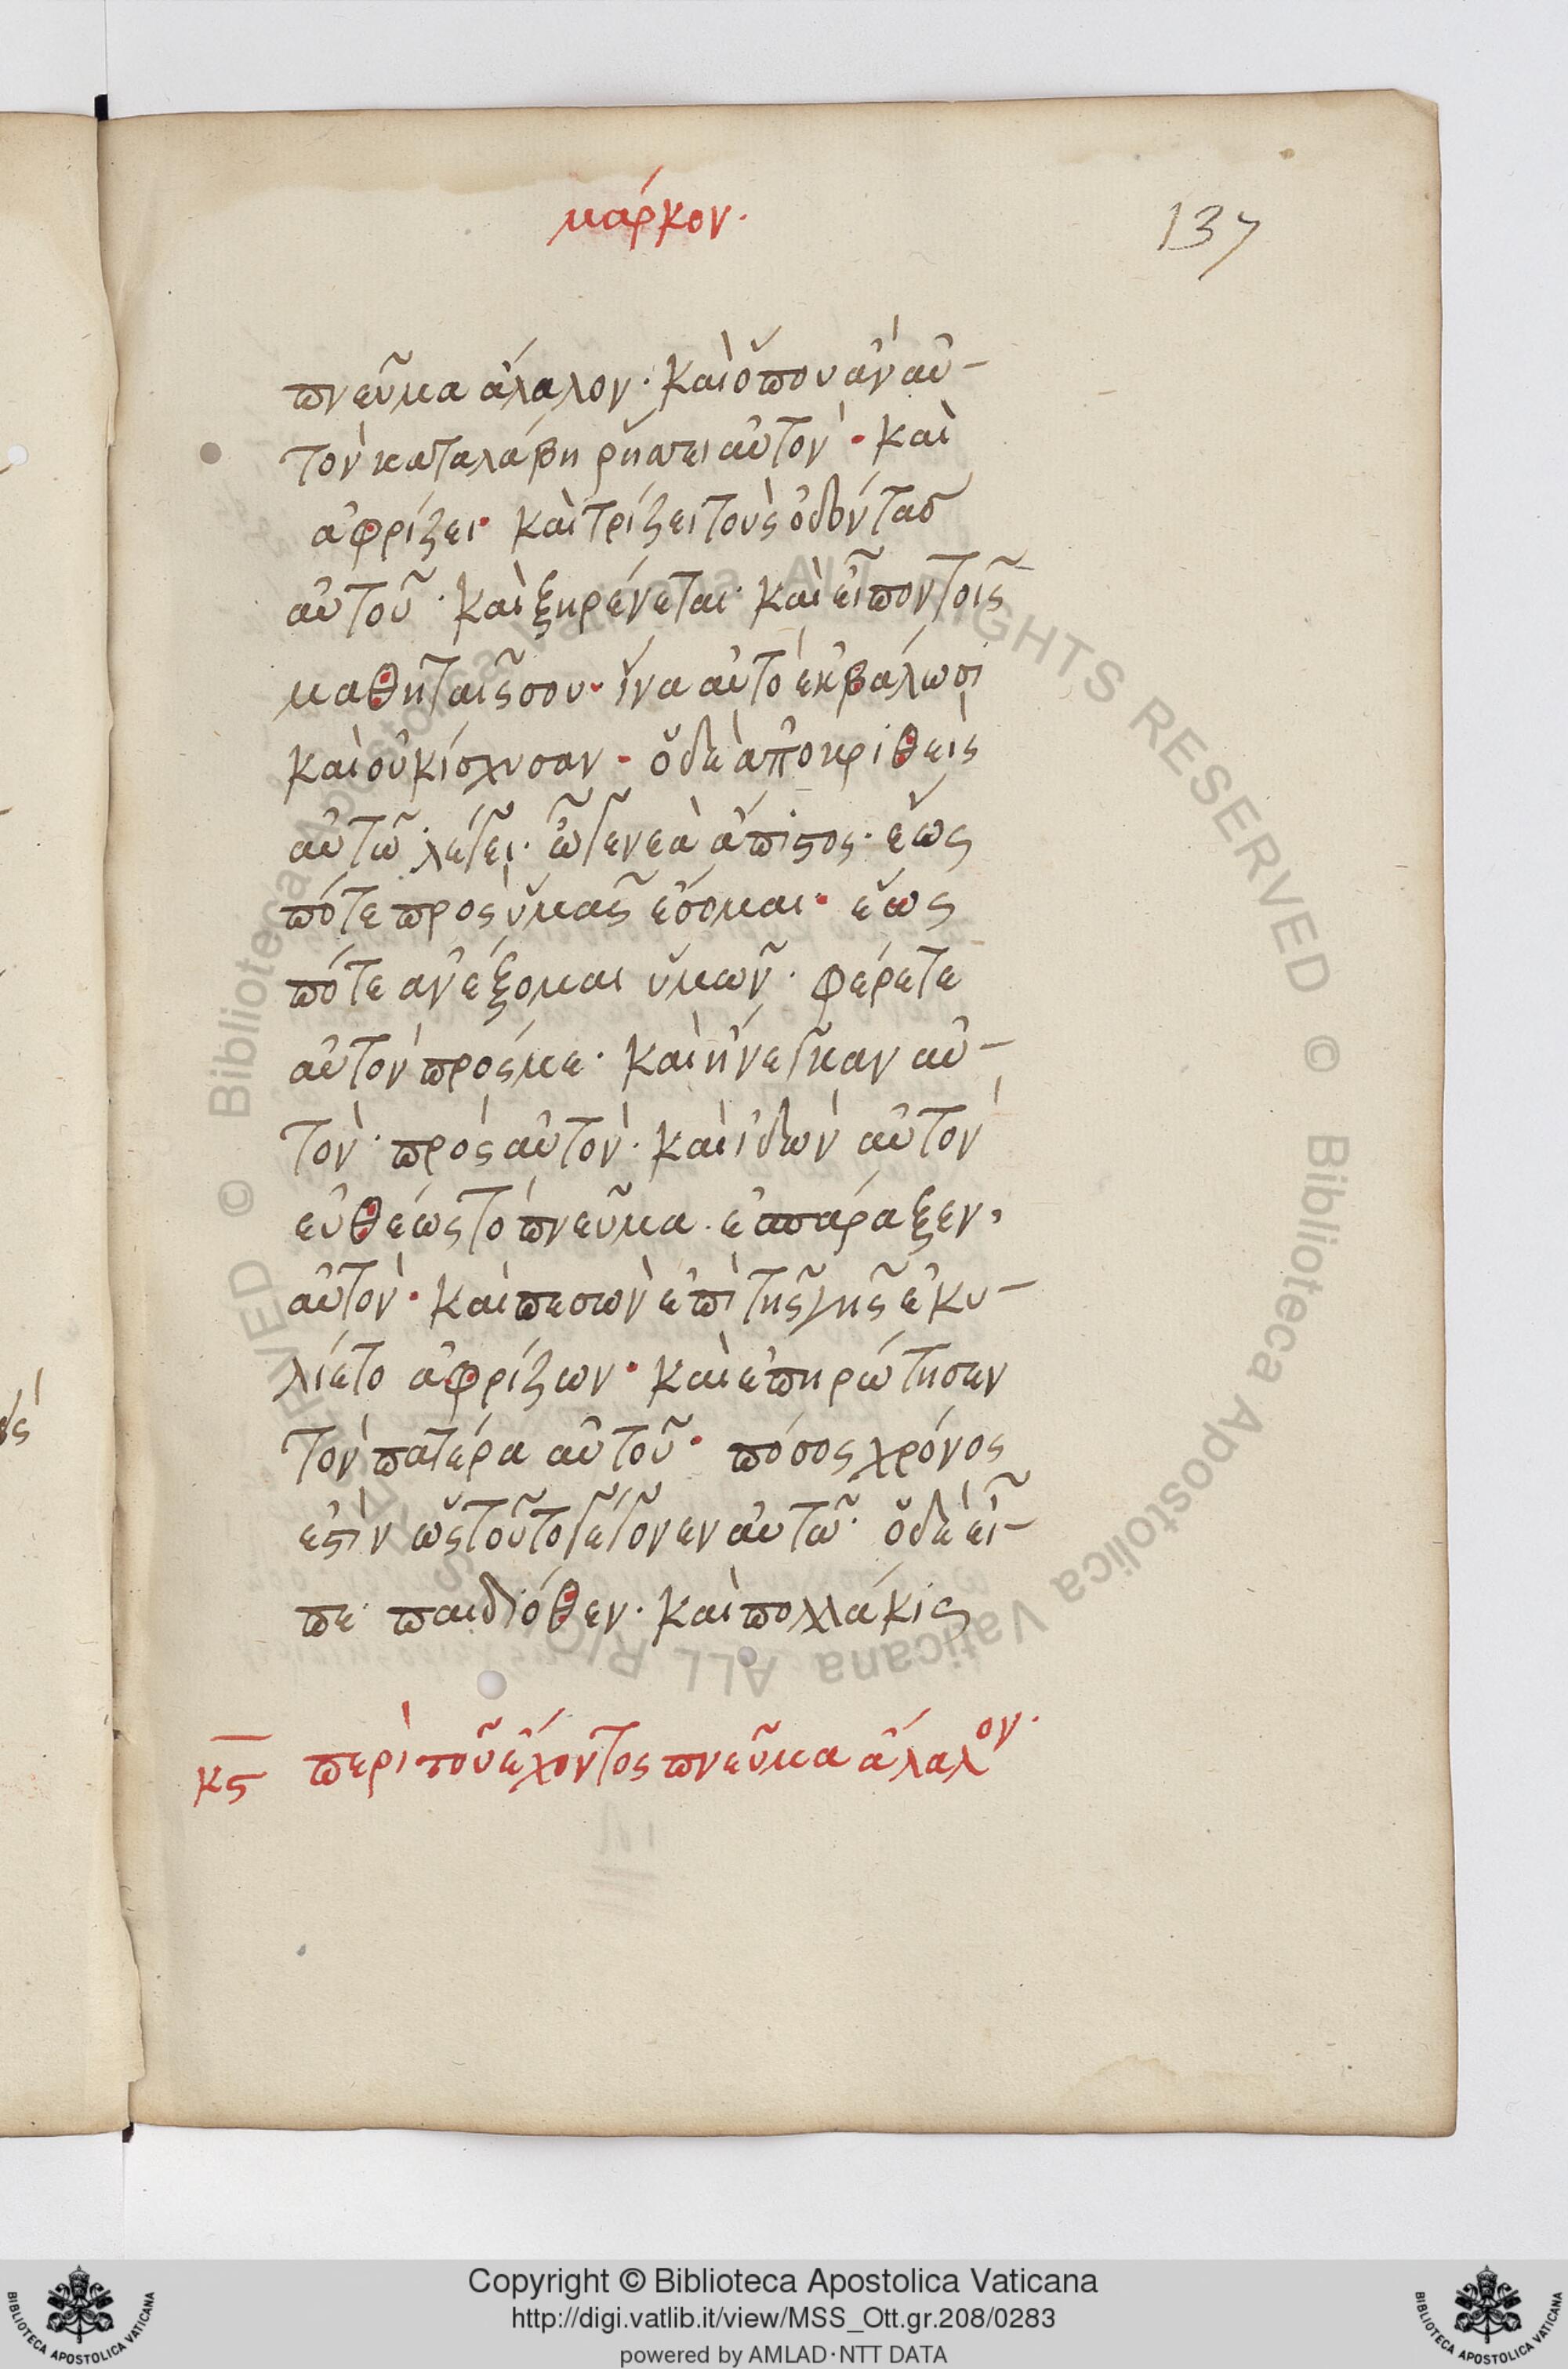 μάρκον.
137
πνεῦμα ἄλαλον· καὶ ὅπου ἂν αὐ-
τὸν καταλάβη ρήσσει αὐτὸν· καὶ
ἀφρίζει· καὶ τρίζει τοὺς ὀδόντας
αὐτοῦ· καὶ ξηρένεται· καὶ εἶπον τοῖς
μαθηταῖς σου· ἵνα αὐτὸ ἐκβάλωσι
καὶ οὐκ ίσχυσαν· ὅ δὲ ἀποκριθεὶς
αὐτῶ λέγει· ὦ γενεὰ ἄπιστος· ἕως
πότε πρὸς ὑμᾶς ἔσομαι· ἕως
πότε ἀνέξομαι ὑμῶν· φέρετε
αὐτὸν πρός με· καὶ ἤνεγκαν αὐ-
τὸν· πρὸς αὐτὸν· καὶ ἰδὼν αὐτὸν
εὐθέως τὸ πνεῦμα· ἐσπάραξεν,
αὐτὸν· καὶ πεσὼν ἐπὶ τῆς γῆς ἐκυ-
λίετο ἀφρίζων· καὶ ἐπηρώτησεν
τὸν πατέρα αὐτοῦ· πόσος χρόνος
ἐστὶν ὡς τοῦτο γέγονεν αὐτῶ· ὅ δὲ εἶ-
πε· παιδιόθεν· καὶ πολλάκις
κς περὶ τοῦ ἔχοντος πνεῦμα ἄλαλον·
© Biblioteca Apostolica Vaticana ALL RIGHTS RESERVED © Biblioteca Apostolica Vaticana ALL RIGHTS RESERVED
BIBLIOTECA APOSTOLICA VATICANA
Copyright © Biblioteca Apostolica Vaticana
http://digi.vatlib.it/view/MSS_Ott.gr.208/0283
powered by AMLAD·NTT DATA
BIBLIOTECA APOSTOLICA VATICANA